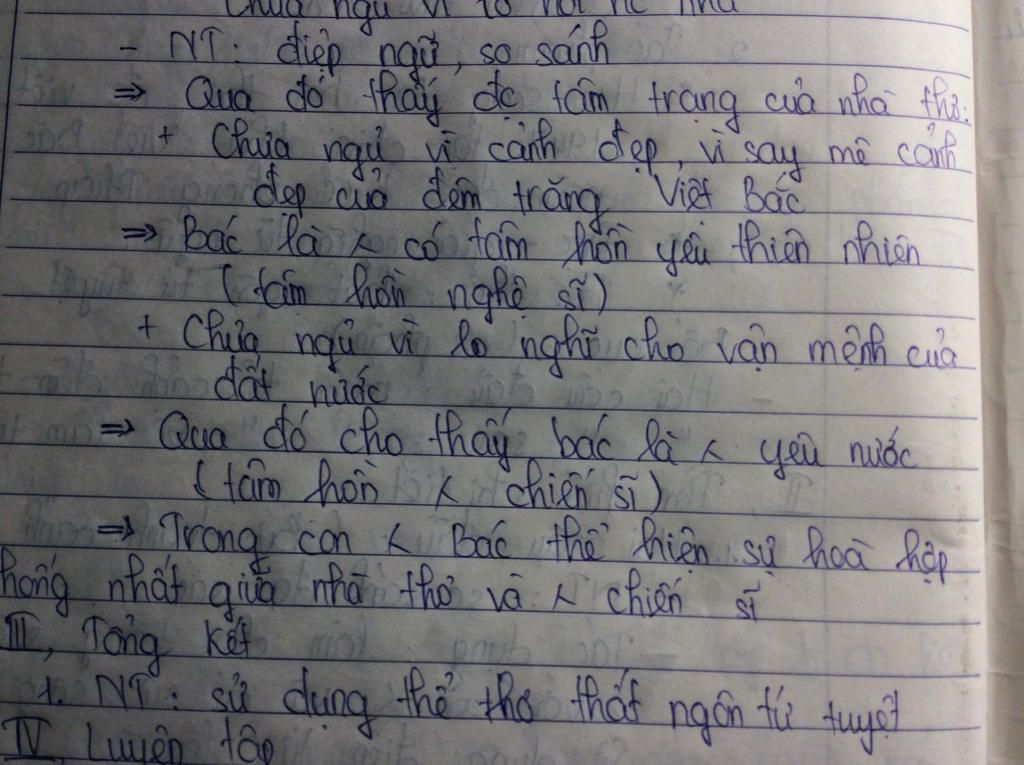 Chưa ngủ vì lo nỗi nc nhà
- NT: điệp ngữ, so sánh
⇒ Qua đó thấy đc tâm trạng của nhà thơ:
+ Chưa ngủ vì cảnh đẹp, vì say mê cảnh
đẹp của đêm trăng Việt Bắc
⇒ Bác là < có tâm hồn yêu thiên nhiên
(tâm hồn nghệ sĩ)
+ Chưa ngủ vì lo nghĩ cho vận mệnh của
đất nước
⇒ Qua đó cho thấy bác là < yêu nước
(tâm hồn < chiến sĩ)
⇒ Trong con < Bác thể hiện sự hoà hợp
hống nhất giữa nhà thơ và < chiến sĩ
III, Tổng kết
1. NT: sử dụng thể thơ thất ngôn tứ tuyệt
IV Luyện tập